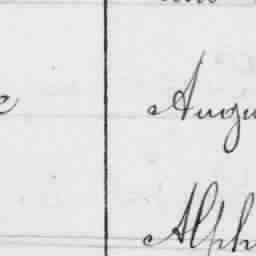 Augu
Alph